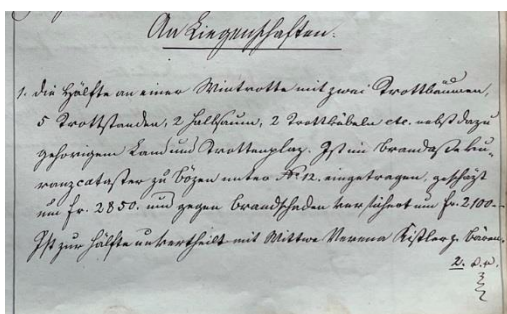 An Liegenschaften.
1. die Hälfte an einer Weintrotte mit zwei Trottbäumen,
5 Trottstanden, 2 Halbsaum, 2 Trottkübeln etc. nebst dazu
gehörigem Land und Trottenplaz. Ist im Brandasseku-
ranzcataster zu Bözen unter No. 12. eingetragen, geschäzt
um fr. 2850. und gegen Brandschaden versichert um fr. 2,100.-
Ist zur Hälfte unvertheilt mit Wittwe Verena Kistler z. Bären.